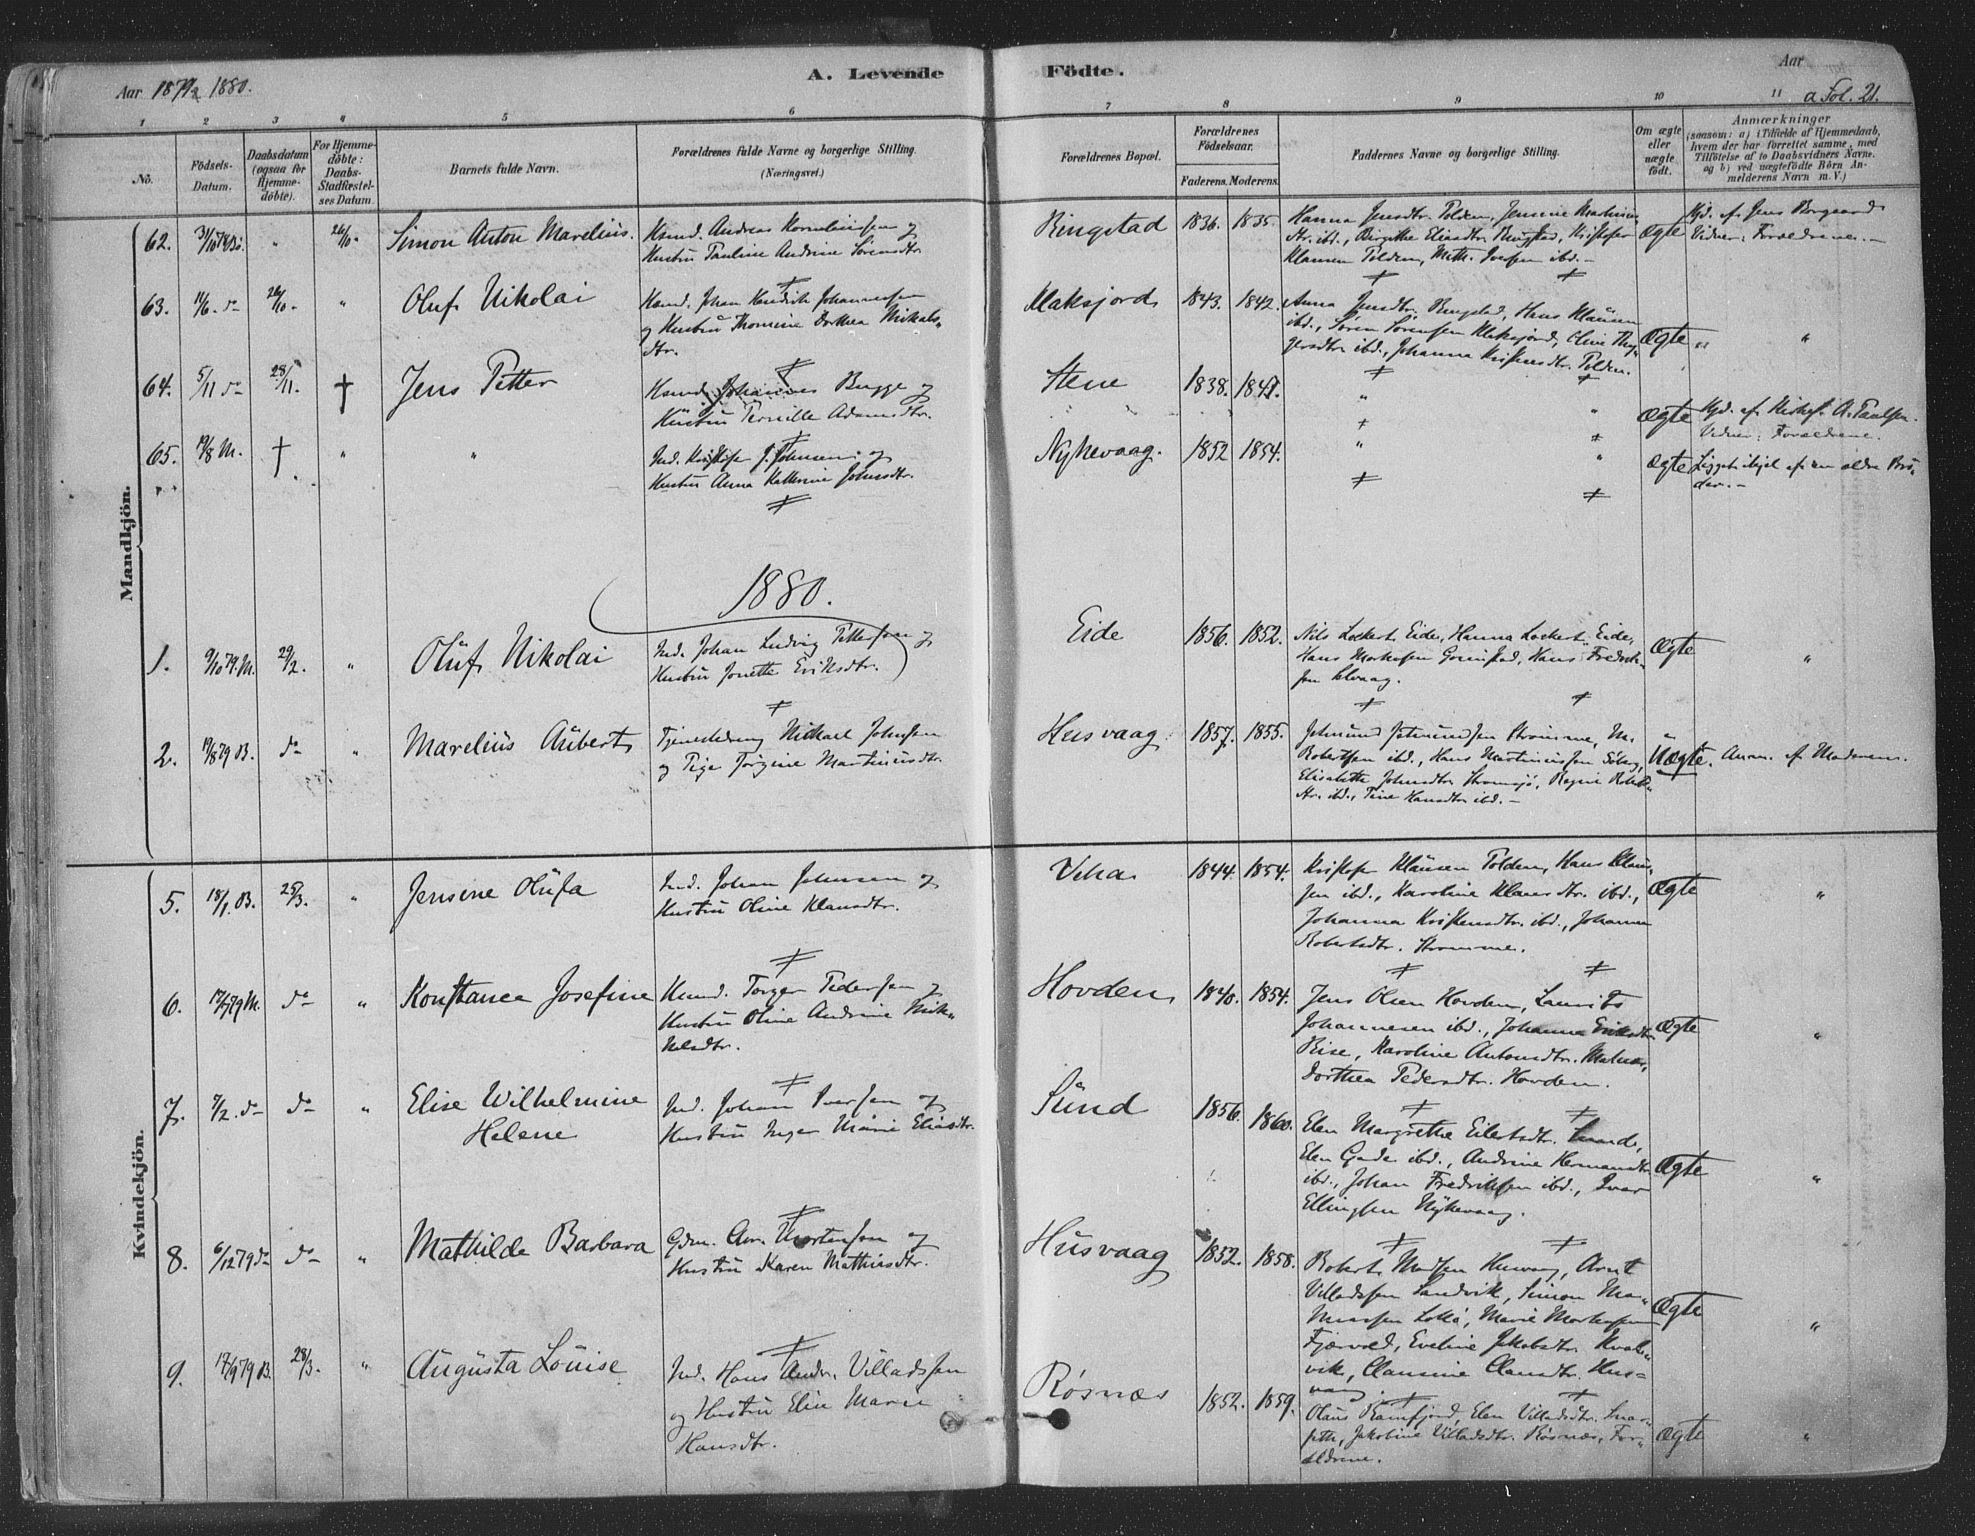 Aar 1879 & 1880.
A. Levende Födte.
Aar
a Fol. 21.
1 2 3 4 5 6 7 8 9 10 11
No.
Födsels-Datum.
Daabsdatum (ogsaa for Hjemmedöbte).
For Hjemmedöbte: Daabs-Stadfæstelses Datum.
Barnets fulde Navn.
Forældrenes fulde Navne og borgerlige Stilling. (Næringsvei.)
Forældrenes Bopæl.
Forældrenes Födselsaar.
Faderens. Moderens.
Faddernes Navne og borgerlige Stilling.
Om ægte eller uægte födt.
Anmærkninger
(saasom: a) i Tilfælde af Hjemmedaab, hvem der har forrettet samme, med Tilföielse af to Daabsvidners Navne. og b) ved uægtefödte Börn Anmelderens Navn m. V.)
Mandkjön.
62. " 26/10. Simon Anton Marelius.
Kmd. Andreas Korneliussen og
Hustru Pauline Andrine Sörensdtr.
Ringstad 1836. 1835.
Hanna Jensdtr. Tolden, Jensine
ibd., Birgithe Eliasdtr. Ringstad, Kristofer
Klausen Tolden, Mith. Iversen ibd. –
Ægte
Hjd. af Jens Borgaard
Vidner: Forældrene. –
63. 11/6. do 26/10. " Oluf Nikolai
Kmd. Johan Hendrik Johannessen
og Hustru Thomine Dorthea Nikols-
dtr.
Klaksjord 1843. 1842.
Anna Jensdtr. Ringstad, Hans Klausen
ibd., Sören Sörensen Klaksjord, Oline
ibd., Johanna Kristensdtr. Tolden.
Ægte " "
64. 5/11 do 28/11. † Jens Petter
Kmd. Johannes Bugge og
Hustru Pernille Adamsdtr.
Stene 1838. 1841. " "
Ægte Hjd. af Kirkes. A. Paulsen.
Vidner: Forældrene.
65. 19/8 M. † " "
Ind. Kristofer J. Johnsen og
Hustru Anna Katherine Johnsdtr.
Nykevaag. 1852 1854. " "
Ægte Ligget ihjel af en ældre Bro-
der. –
1880.
1. 9/10 79. M. 29/2. " Oluf Nikolai
Ind. Johan Ludvig Pettersen og
Hustru Jonette Eriksdtr.
Eide 1856. 1852.
Nils Lockert Eide, Hanna Lockert Eide,
Hans Markusen Grimstad, Hans Fredrik-
sen
Ægte "
2. 19/8 79 B. do " Marelius Aubert
Tjenestedreng Mickael Johnsen
og Pige Jörgine Martinusdtr.
Husvaag 1857. 1855.
Strömme, M.
Robertsen ibd., Hans Martinussen
Elisabeth Johnsdtr. Regine
ibd., Tine Hansdtr. ibd. –
Uægte. Anm. af Moderen.
Kvindekjön.
5. 18/1. B. 25/3. " Jensine Olufa
Ind. Johan Johnsen og
Hustru Oline Klausdtr.
Vika 1844. 1854.
Kristofer Klausen Tolden, Hans Klau-
sen ibd., Karoline Klausdtr. ibd.,
Johanna Kristensdtr. ibd., Johanna
Robertsdtr. Strömme.
Ægte "
6. do " Konstance Josefine
Kmd. Torger Pedersen og
Hustru Oline Andrine Nik-
kelsdtr.
Hovden 1840. 1854.
Jens Olsen Hovden, Laurits
Johannesen ibd., Johanna Eriksdtr.
Rise, Karoline Antonsdtr. Malnæs,
Dorthea Pedersdtr. Hovden.
Ægte "
7. 7/2. do do " Elise Wilhelmine
Helene
Ind. Johan Iversen og
Hustru Inger Marie Eliasdtr.
Sund 1856. 1860.
Elen Margrethe Eilertsdtr. Sund,
Elen Gade ibd., Andrine Hermansdtr.
ibd., Johan Fredriksen ibd., Ivar
Ellingsen Nykevaag.
Ægte "
8. 6/12 79 do do " Mathilde Barbara
Gdm. Mortensen og
Hustru Karen Mathiasdtr.
Husvaag 1852. 1858.
Robert Madsen Husvaag, Arnt
Villadssen Sandvik, Simon
Marie Markusen
Fjærvold, Eveline Jakobsdtr. Kval-
vik, Clausine Clausdtr. Hus-
vaag.
Ægte "
9. 18/9 79 B. 28/3. " Augusta Louise
Ind. Hans Andr. Villadssen
og Hustru Elen Marie
Hansdtr.
Rösnæs 1852. 1859.
Olaus Ramfjord, Elen Villadsdtr.
Jakobine Villadsdtr. Rösnæs, For-
ældrene.
Ægte "